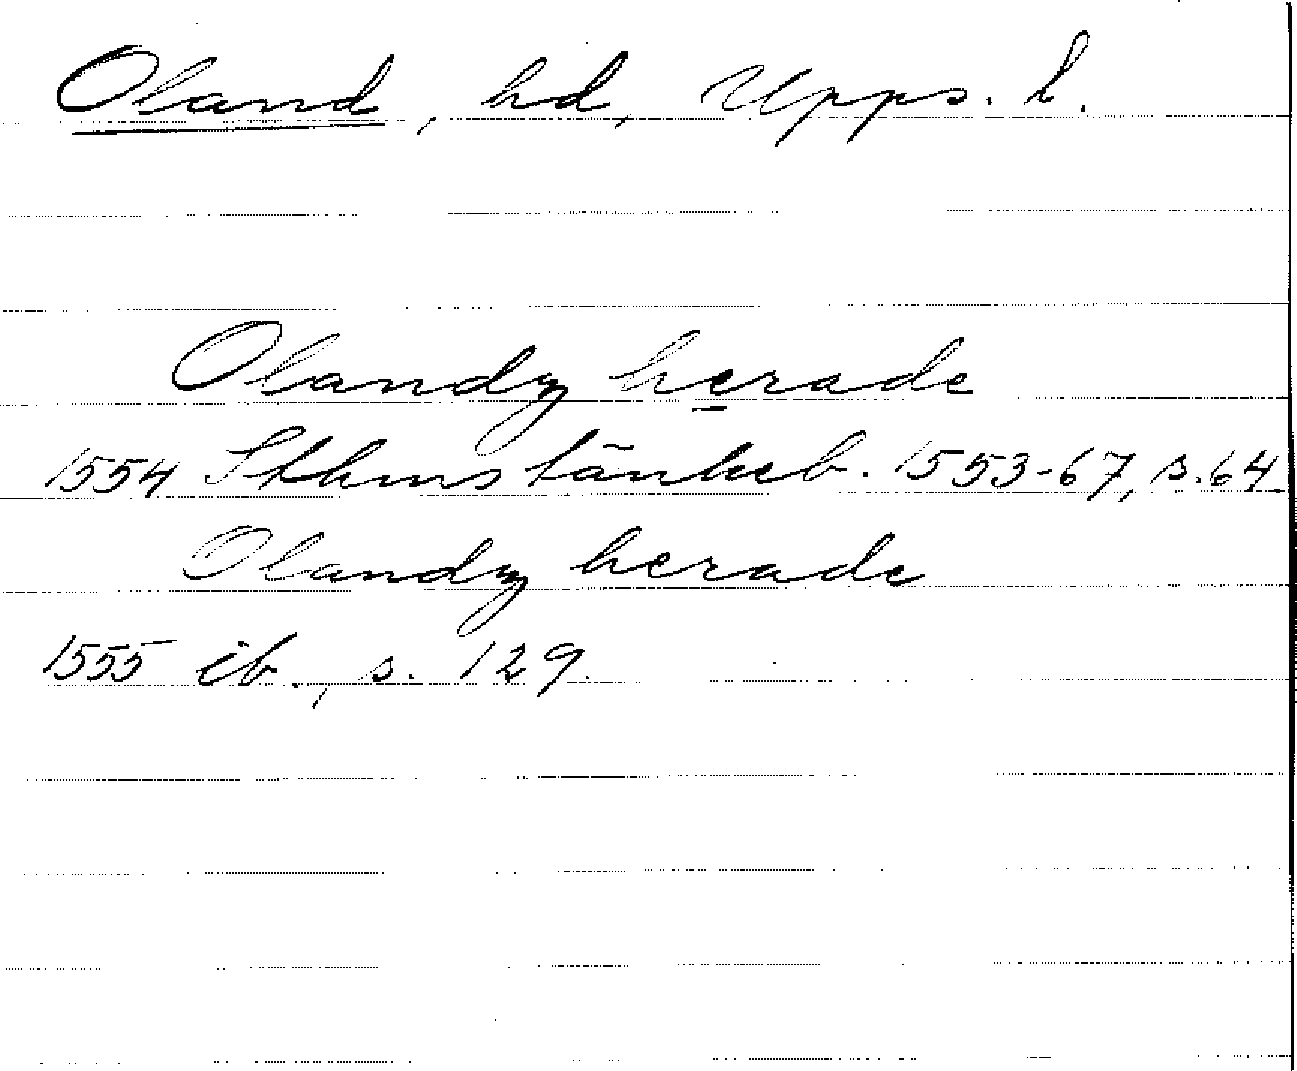 Oland, hd, Upps. l.
Olandz herade
1554 Sthms tänkeb. 1553-67, s. 64
Olandz herade
1555 ib., s. 129.